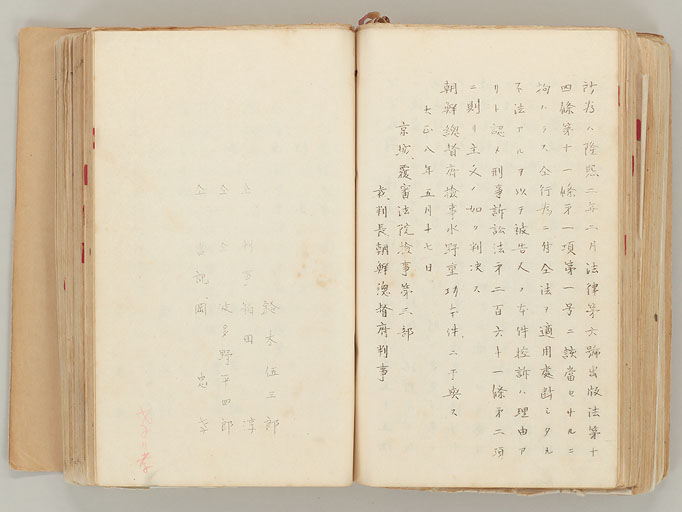 所為ハ隆熙二年二月法律第六號出版法第十
四條第十一條第一項第一号ニ該當セサルニ
拘ハラス仝行為ニ付仝法ヲ適用處斷シタル
不法アルヲ以テ被告人ノ本件控訴ハ理由ア
リト認メ刑事訴訟法第二百六十一條第二項
ニ則リ主文ノ如ク判決ス
朝鮮總督府檢事水野重功本件ニ干與ス
大正八年五月十七日
京城覆審法院檢事第二部
裁判長朝鮮總督府判事
鈴木伍三郎
仝 判事 田 淳
仝 仝 波多野平四郎
仝 書記 岡 忠孝